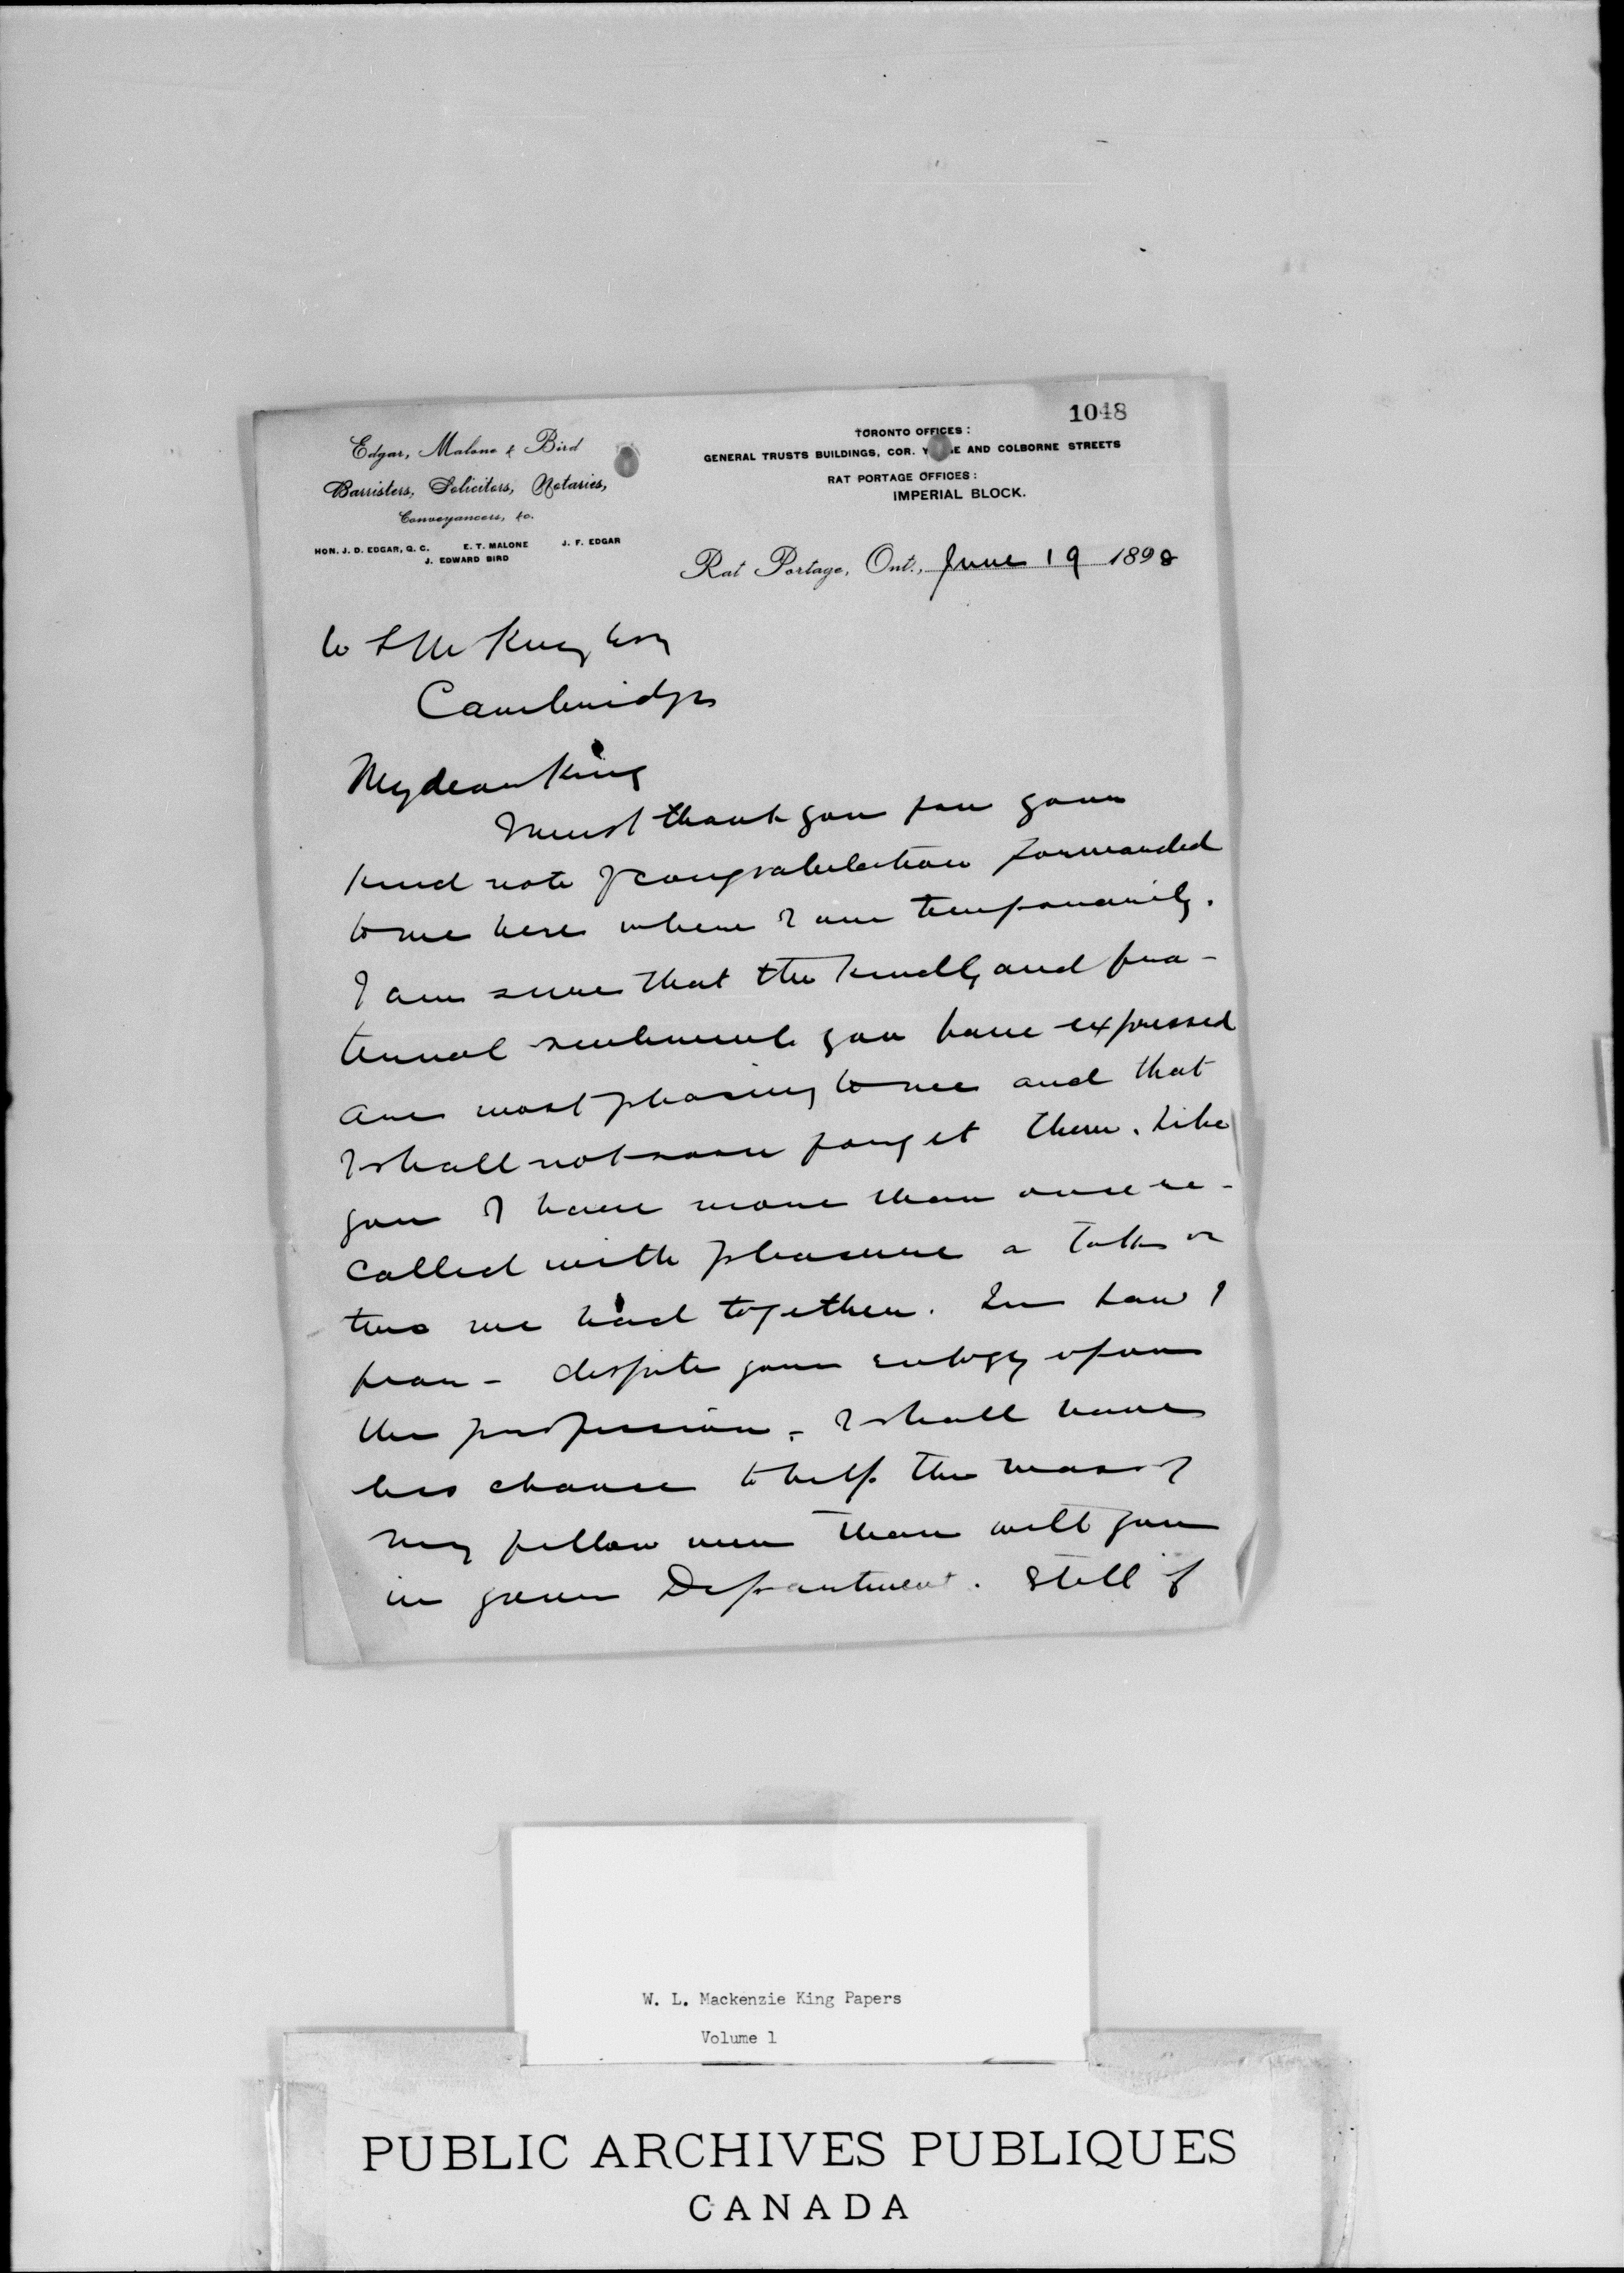 1048
Edgar, Malone & Bird
Barristers, Solicitors, Notaries,
Conveyancers, &c.
HON. J. D. EDGAR, Q. C. E. T. MALONE J. F. EDGAR
J. EDWARD BIRD
TORONTO OFFICES:
GENERAL TRUSTS BUILDINGS, COR. Y  GE AND COLBORNE STREETS
RAT PORTAGE OFFICES:
IMPERIAL BLOCK.
Rat Portage, Ont., June 19 1898
W L M King Esq
Cambridge
My dear King
I must thank you for your
kind note of congratulation forwarded
to me here where I am temporarily.
I am sure that the kindly and fra-
ternal sentiments you have expressed
are most pleasing to me and that
I shall not soon forget them. Like
you I have more than once re-
called with pleasure a talk or
two we had together. In Law I
fear - despite your eulogy upon
the profession - I shall have
less chance to help the mass of
my fellow men than will you
in your Department. Still if
W. L. Mackenzie King Papers
Volume 1
PUBLIC ARCHIVES PUBLIQUES
CANADA